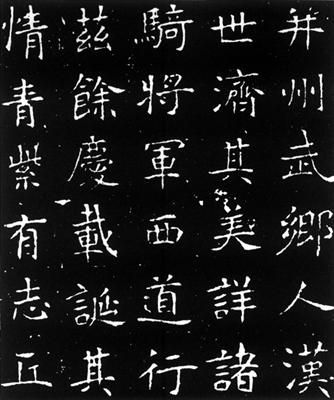 并州武鄉人漢
世濟其美詳諸
騎將軍西道行
茲餘慶載誕其
情青紫有志丘